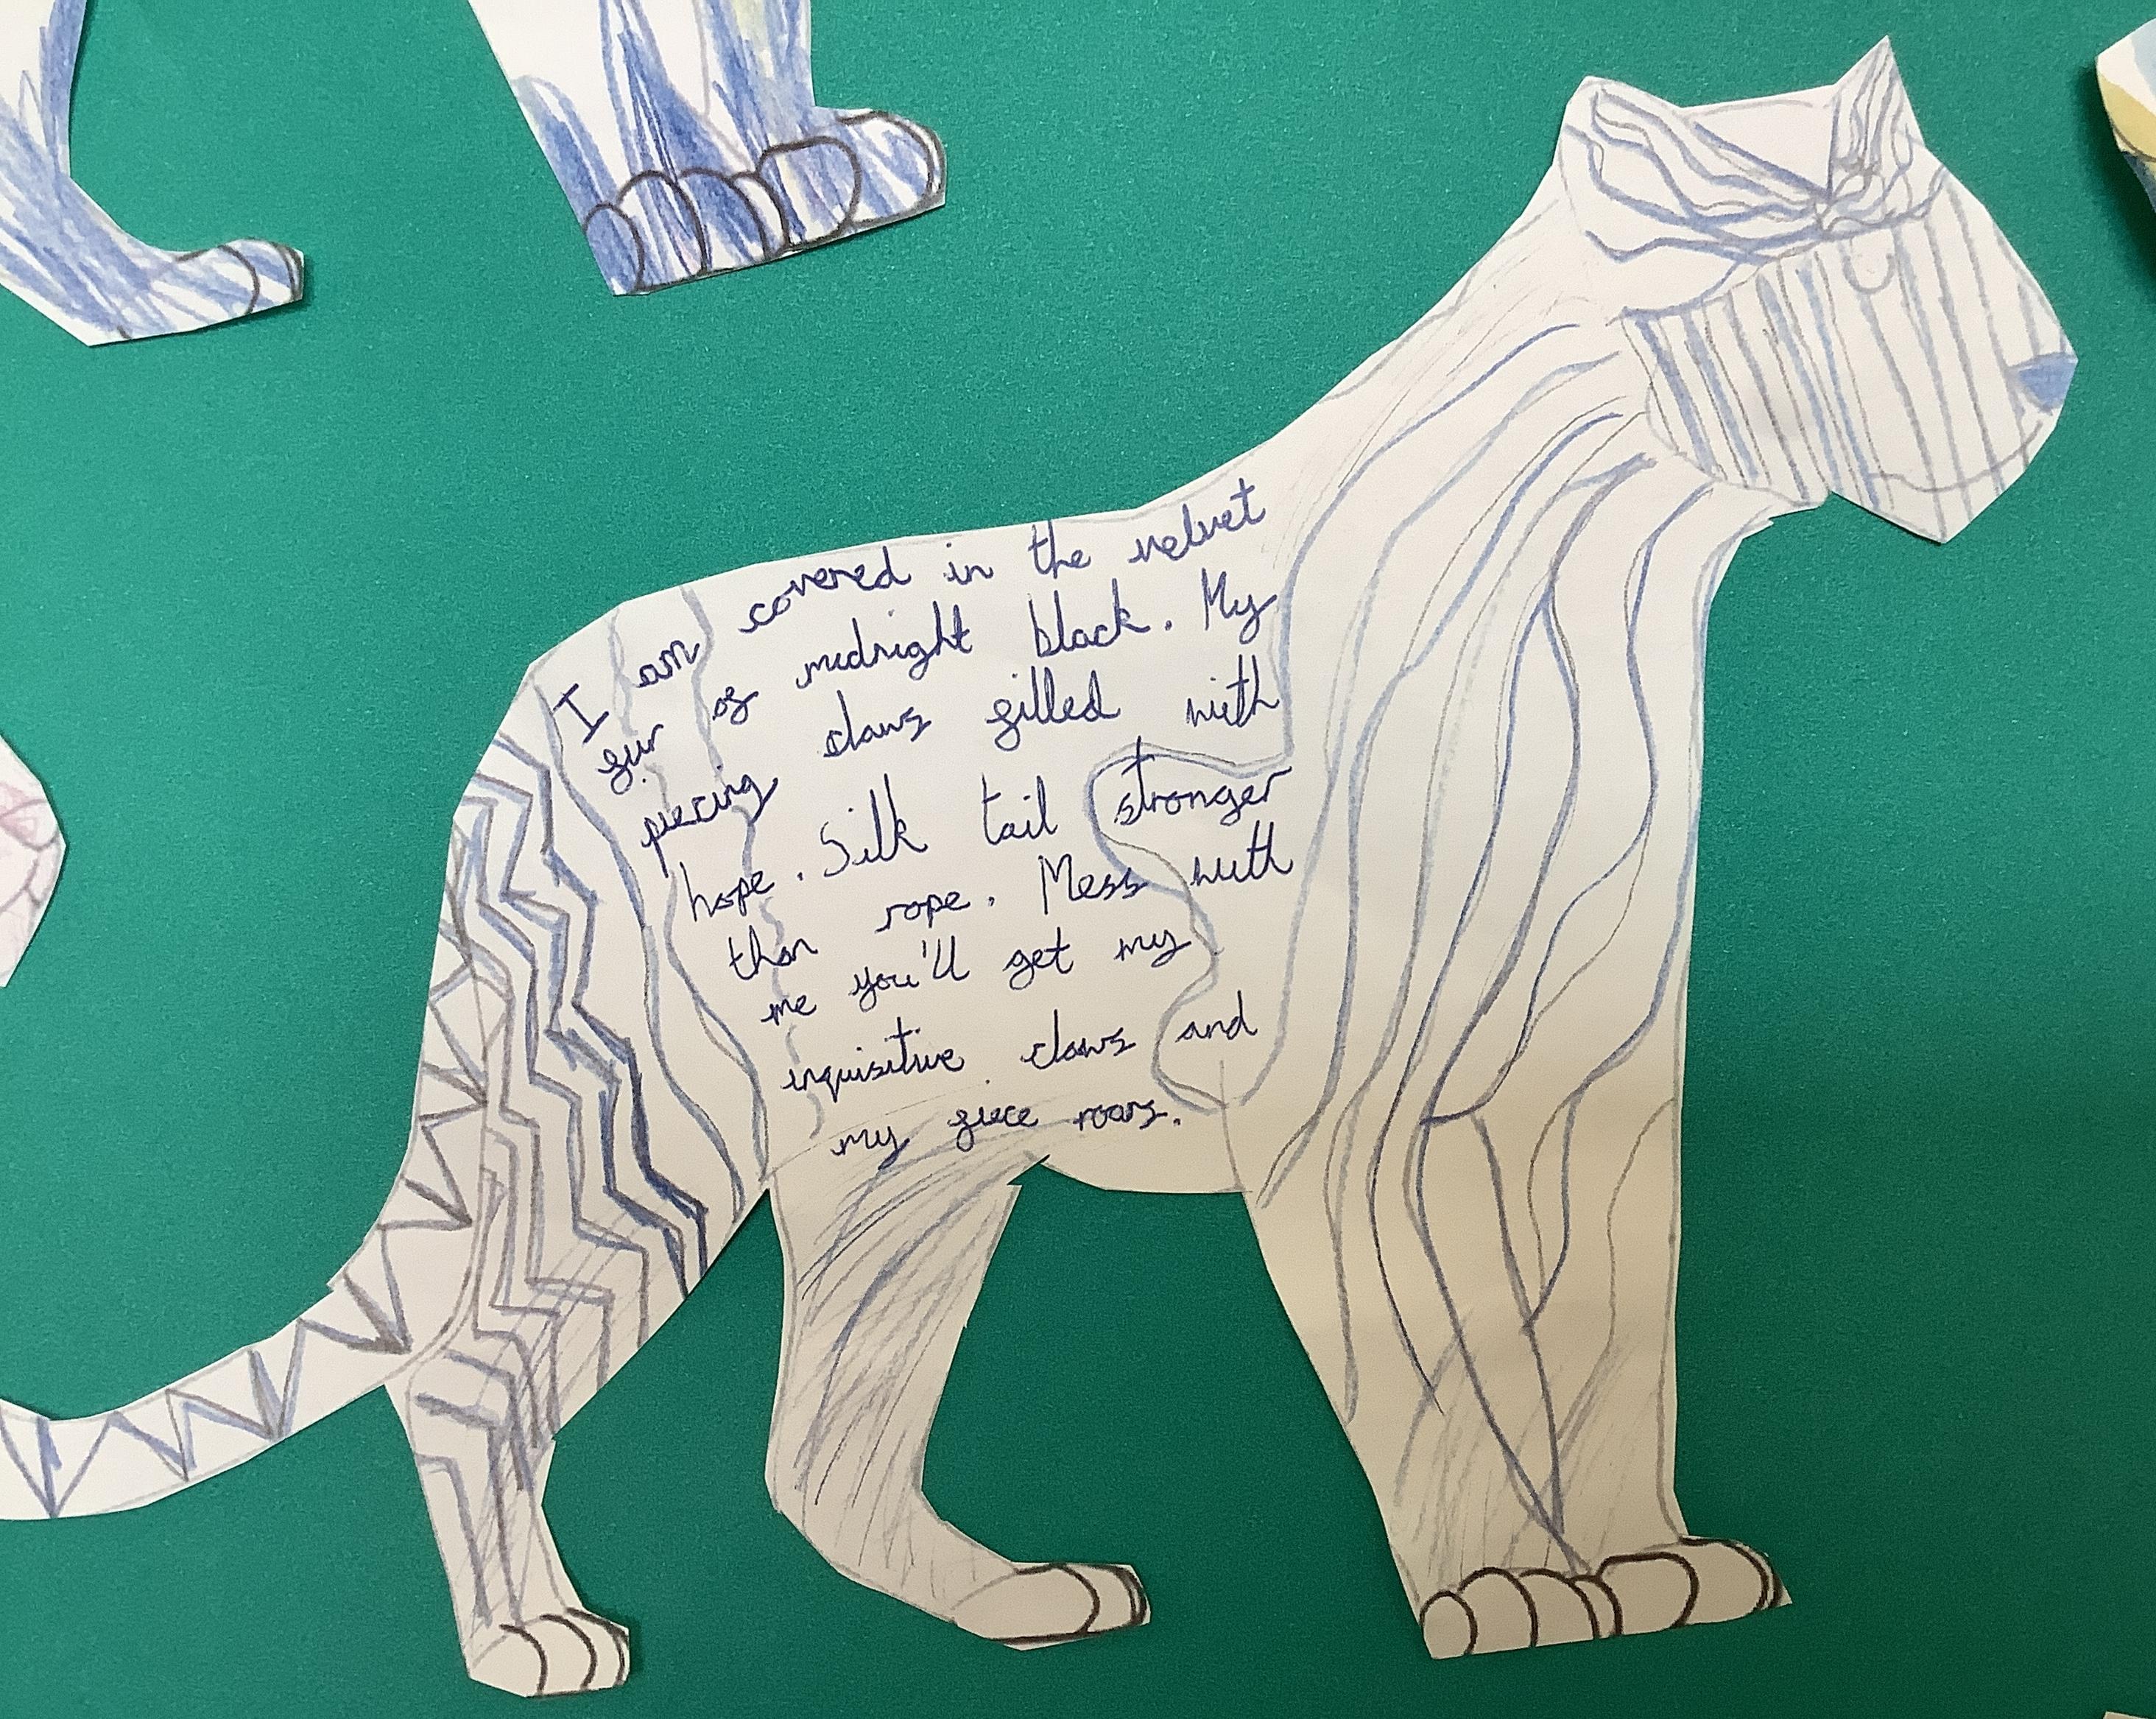 I am covered in the velvet
fur of midnight black. My
piecing claws filled with
hope. Silk tail stronger
than rope. Mess with
me you'll get my
inquisitive claws and
my fiece roars.